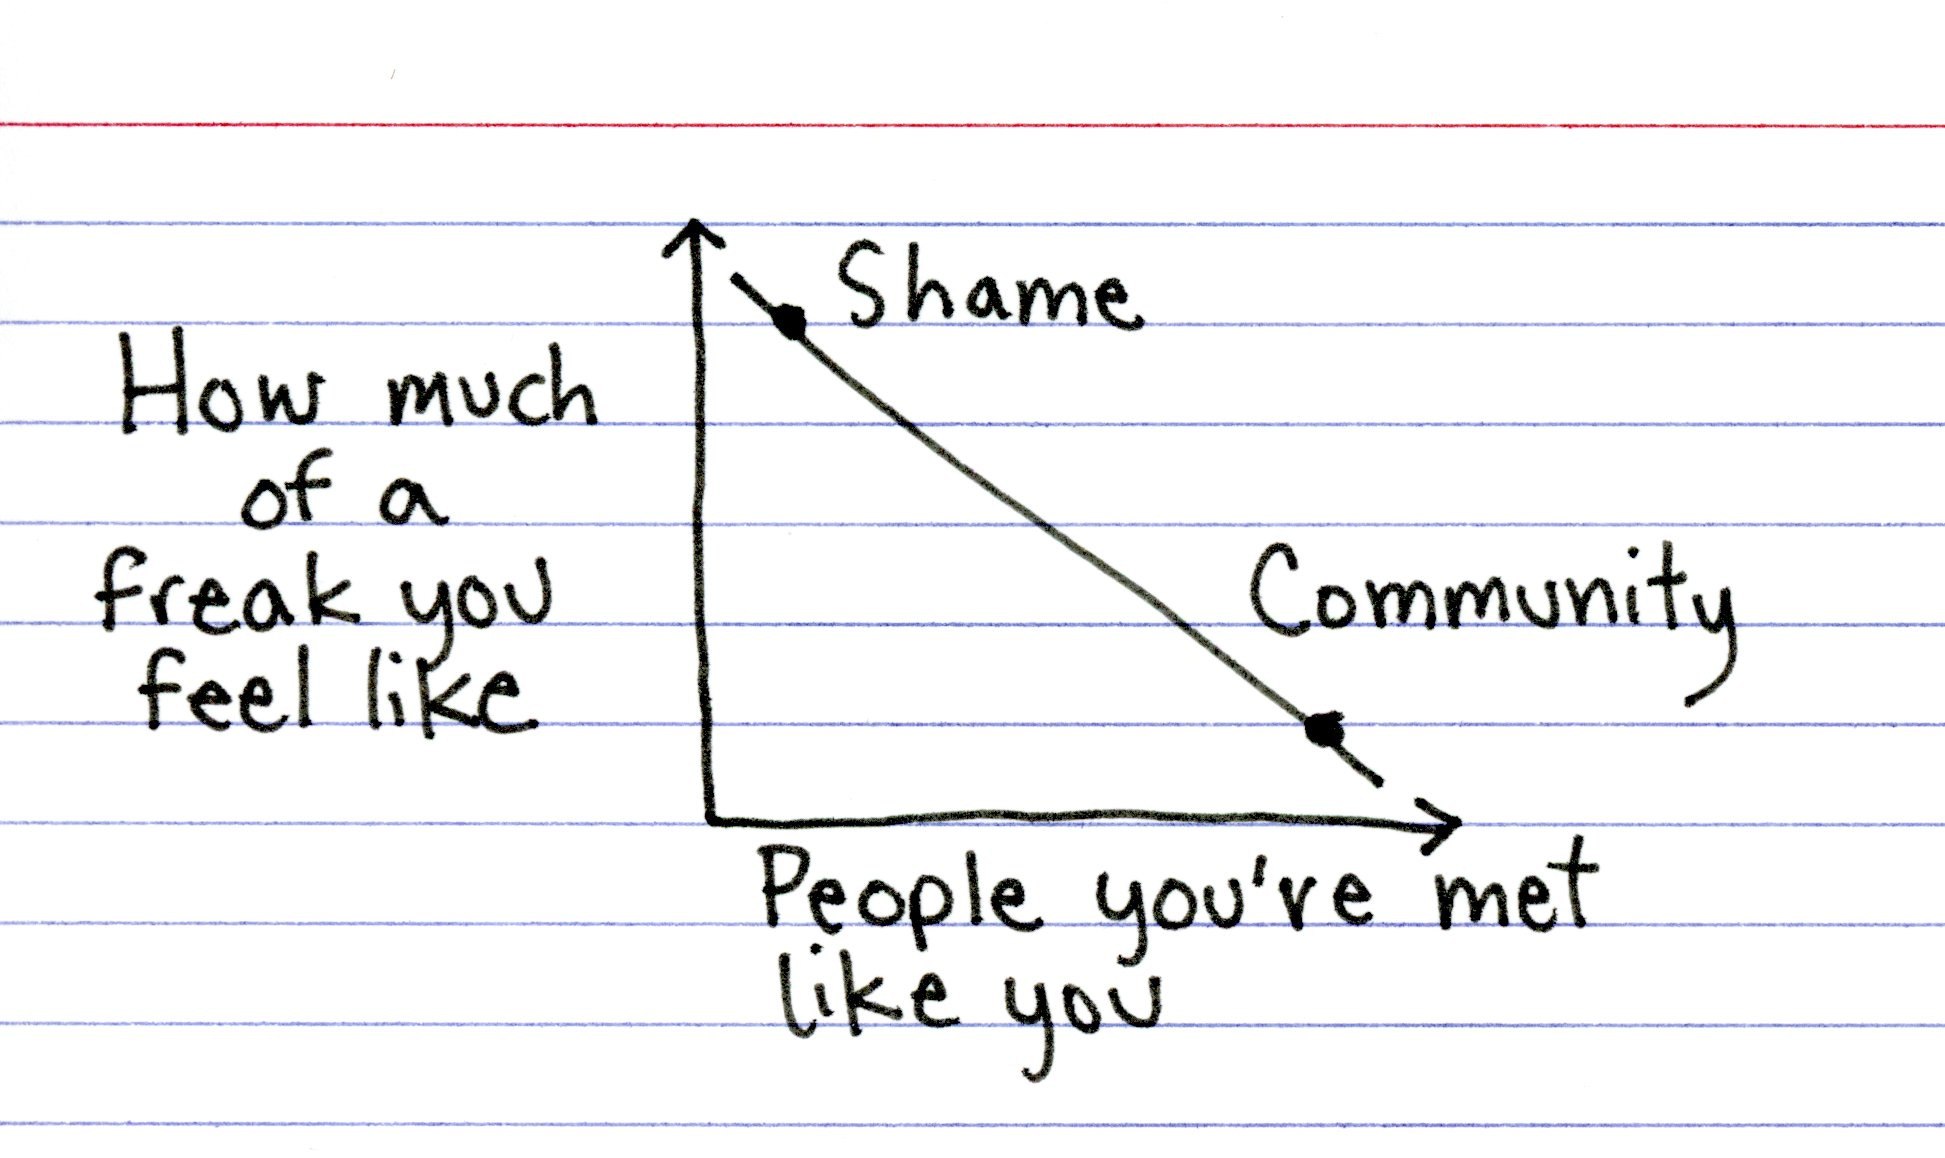 Shame
How much
of a
freak you
feel like
Community
People you're met
like you